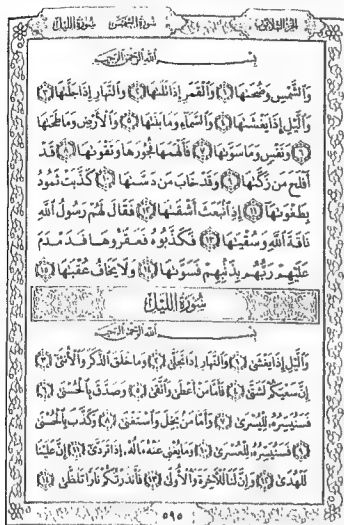 الجزء الثلاثون سورة الشمس سورة الليل
بسم الله الرحمن الرحيم
والشمس وضحىها ١ والقمر إذا تلىها ٢ والنهار إذا جلىها ٣
واليل إذا يغشىها ٤ والسماء وما بنىها ٥ والأرض وما طحىها
٦ ونفس وما سوىها ٧ فألهمها فجورها وتقوىها ٨ قد
أفلح من زكىها ٩ وقد خاب من دسىها ١٠ كذبت ثمود
بطغوىها ١١ إذ انبعث أشقىها ١٢ فقال لهم رسول الله
ناقة الله وسقيها ١٣ فكذبوه فعقروها فدمدم
عليهم ربهم بذنبهم فسوىها ١٤ ولا يخاف عقبها ١٥
سورة الليل
بسم الله الرحمن الرحيم
واليل إذا يغشى ١ والنهار إذا تجلى ٢ وما خلق الذكر والأنثى ٣
إن سعيكم لشتى ٤ فأما من أعطى واتقى ٥ وصدق بالحسنى ٦
فسنيسره لليسرى ٧ وأما من بخل واستغنى ٨ وكذب بالحسنى
٩ فسنيسره للعسرى ١٠ وما يغنى عنه ماله إذا تردى ١١ إن علينا
للهدى ١٢ وإن لنا للآخرة والأولى ١٣ فأنذرتكم نارا تلظى ١٤
٥٩٥